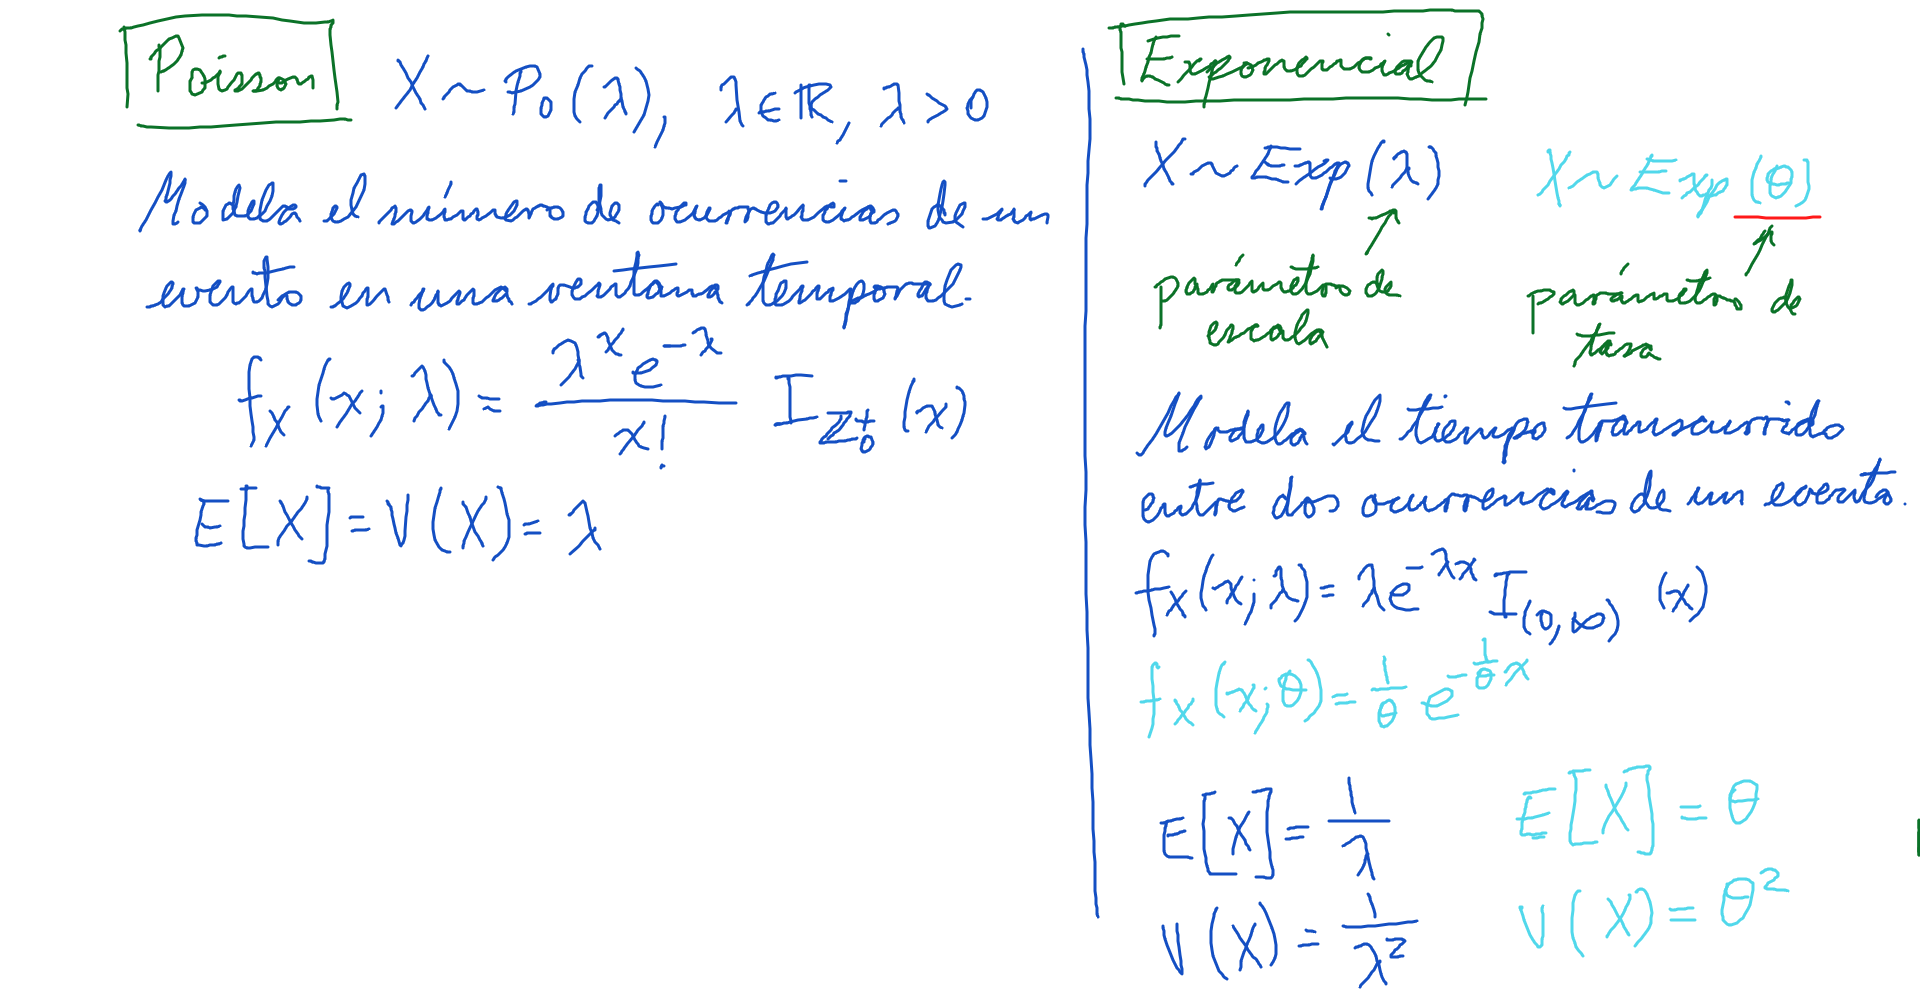 Poisson X ~ Po(λ), λ ∈ ℝ, λ > 0
Modela el número de ocurrencias de un
evento en una ventana temporal.
f_X(x; λ) = \frac{λ^x e^{-λ}}{x!} I_{ℤ_0^+}(x)
E[X] = V(X) = λ
Exponencial
X ~ Exp(λ) X ~ Exp(θ)
parámetro de parámetro de
escala tasa
Modela el tiempo transcurrido
entre dos ocurrencias de un evento.
f_X(x; λ) = λe^{-λx} I_{(0,∞)}(x)
f_X(x; θ) = \frac{1}{θ} e^{-\frac{1}{θ}x}
E[X] = \frac{1}{λ} E[X] = θ
V(X) = \frac{1}{λ^2} V(X) = θ^2